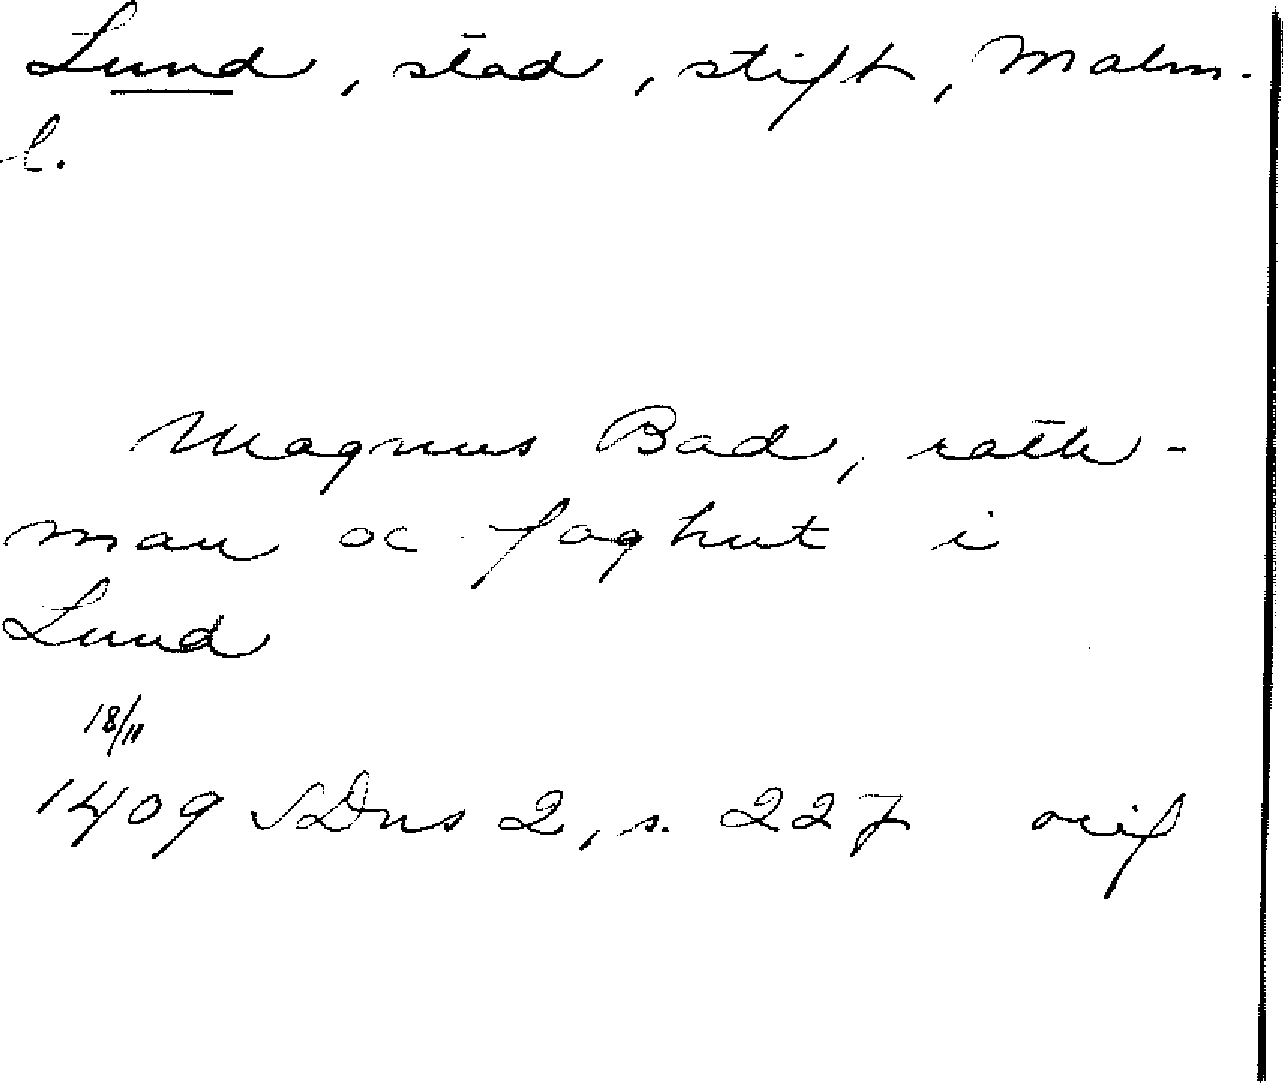 Lund, stad, stift, Malm.
l.
Magnus Bad, rath-
man oc foghut i
Lund
18/11
1409 SDns 2, s. 227 avif